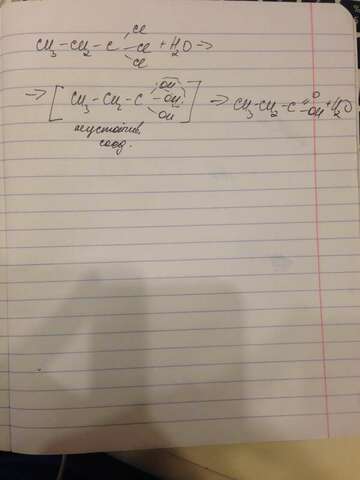 CH₃-CH₂-C
Cl
Cl + H₂O →
Cl
→ [CH₃-CH₂-C
OH
OH
OH] → CH₃-CH₂-C
O
OH + H₂O
неустойчив.
соед.